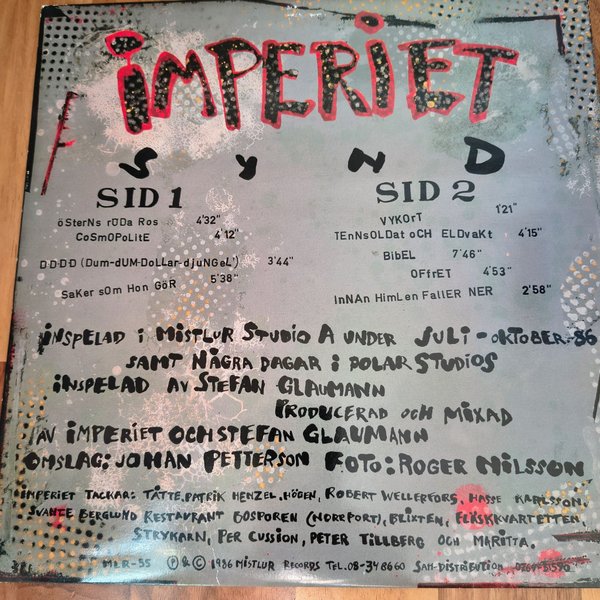 iMPERiET
SyND
SID 1
öSterNs rÖDa Ros 4'32"
CoSmOPoLitE 4'12"
DDDD (Dum-dUM-DoLLar-djuNGeL') 3'44"
SaKer sOm Hon GöR 5'38"
SID 2
VYKOrT 1'21"
TEnNsOLDat oCH ELDvaKt 4'15"
BibEL 7'46"
OFfrET 4'53"
InNAn HimLen FallER NER 2'58"
iNSPELAD i MiSTLUR STUDiO A UNDER JULi-OKTOBER-86
SAMT NÅGRA DAGAR i POLAR STUDiOS
iNSPELAD AV STEFAN GLAUMANN
PRODUCERAD OCH MiXAD
AV iMPERiET OCH STEFAN GLAUMANN
OMSLAG: JOHAN PETTERSON FOTO: ROGER NiLSSON
iMPERiET TACKAR: TÅTTE, PATRiK HENZEL, HÖGEN, ROBERT WELLERFORS, HASSE KARLSSON,
SVANTE BERGLUND RESTAURANT BOSPOREN (NORRPORT), BLiXTEN, FLÄSKKVARTETTEN,
STRYKARN, PER CUSSiON, PETER TiLLBERG OCH MARiTTA.
MLR-55 Ⓟ & © 1986 MiSTLUR RECORDS TEL. 08-34 86 60 SAM-DiSTRiBUTiON